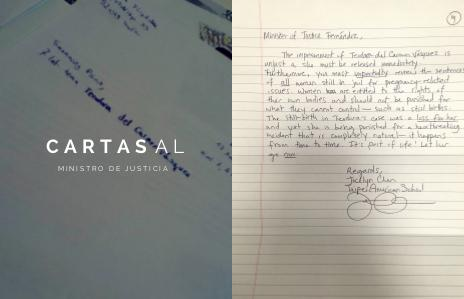 CARTAS AL
MINISTRO DE JUSTICIA
Teodora del Carmen
4
Minister of Justice Fernández,
The imprisonment of Teodora del Carmen Vásquez is
unjust & she must be released immediately.
Furthermore, you must impartially review the sentences
of all women still in jail for pregnancy-related
issues. Women are entitled to the rights of
their own bodies and should not be punished for
what they cannot control — such as still births.
The still-birth in Teodora's case was a loss for her
and yet she is being punished for a heartbreaking
incident that is completely natural — it happens
from time to time. It's part of life! Let her
go now
Regards,
Jocelyn Chan
Taipei American School